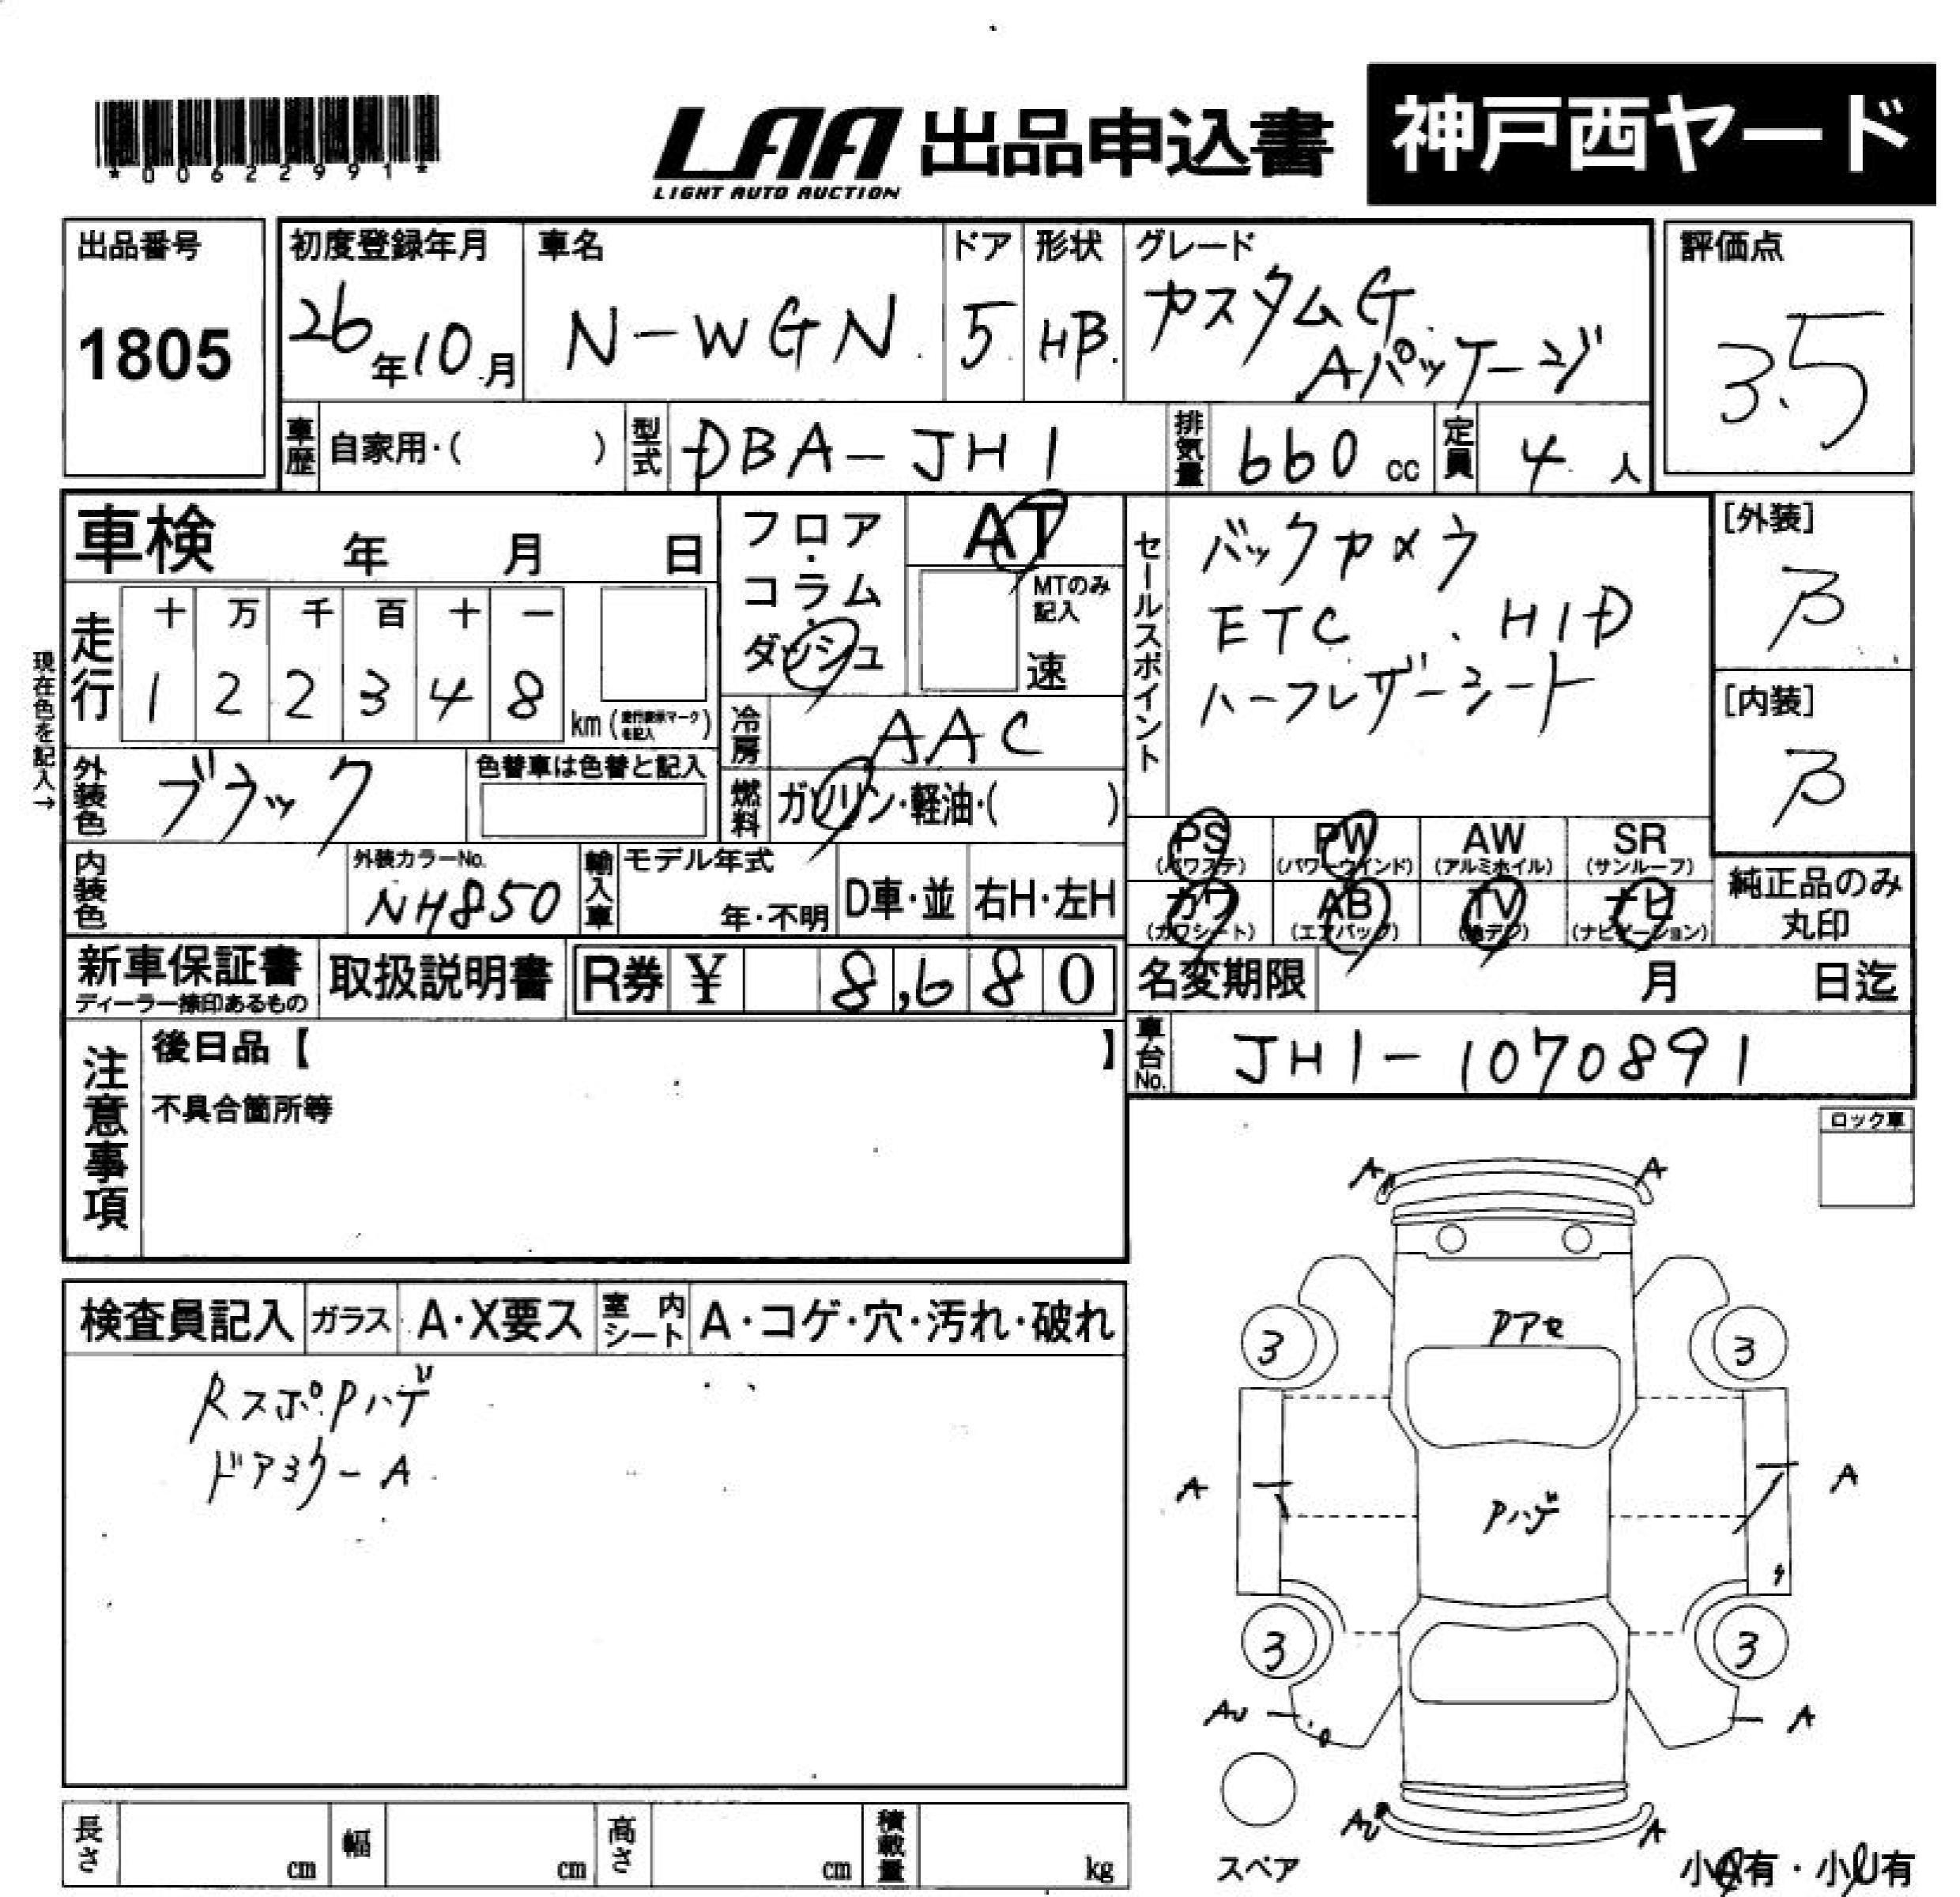 *00622991*
LAA 出品申込書 神戸西ヤード
LIGHT AUTO AUCTION
出品番号
1805
初度登録年月
26年10月
車名
N-WGN
ドア
5
形状
HB
グレード
カスタムG
Aパッケージ
評価点
3.5
車歴 自家用・( )
型式 DBA-JH1
排気量 660 cc
定員 4 人
車検 年 月 日
フロア・コラム・ダッシュ
AT
MTのみ記入
速
セールスポイント
バックカメラ
ETC . HID
ハーフレザーシート
[外装]
B
[内装]
B
現在色を記入→
走行
十 万 千 百 十 一
1 2 2 3 4 8
km(走行表示マークを記入)
冷房 AAC
外装色 ブラック
色替車は色替と記入
燃料 ガソリン・軽油・( )
内装色
外装カラーNo.
NH850
輸入車
モデル年式
年・不明
D車・並 右H・左H
PS AW SR PW
(パワステ) (パワーウインド) (アルミホイル) (サンルーフ)
カワ AB TV ナビ
(カワシート) (エアバック) (地デジ) (ナビゲーション)
純正品のみ
丸印
新車保証書
ディーラー捺印あるもの
取扱説明書
R券 ¥ 8,680
名変期限 月 日迄
車台No. JH1-1070891
注意事項
後日品【 】
不具合箇所等
ロック車
検査員記入 ガラス A・X要ス 室内シート A・コゲ・穴・汚れ・破れ
Rスポ.Pハゲ
ドアミラーA
A A
Pアセ
3 3
A A
Pハゲ
3 3
AU A
AU A
スペア
小A有・小U有
長さ cm 幅 cm 高さ cm 積載量 kg